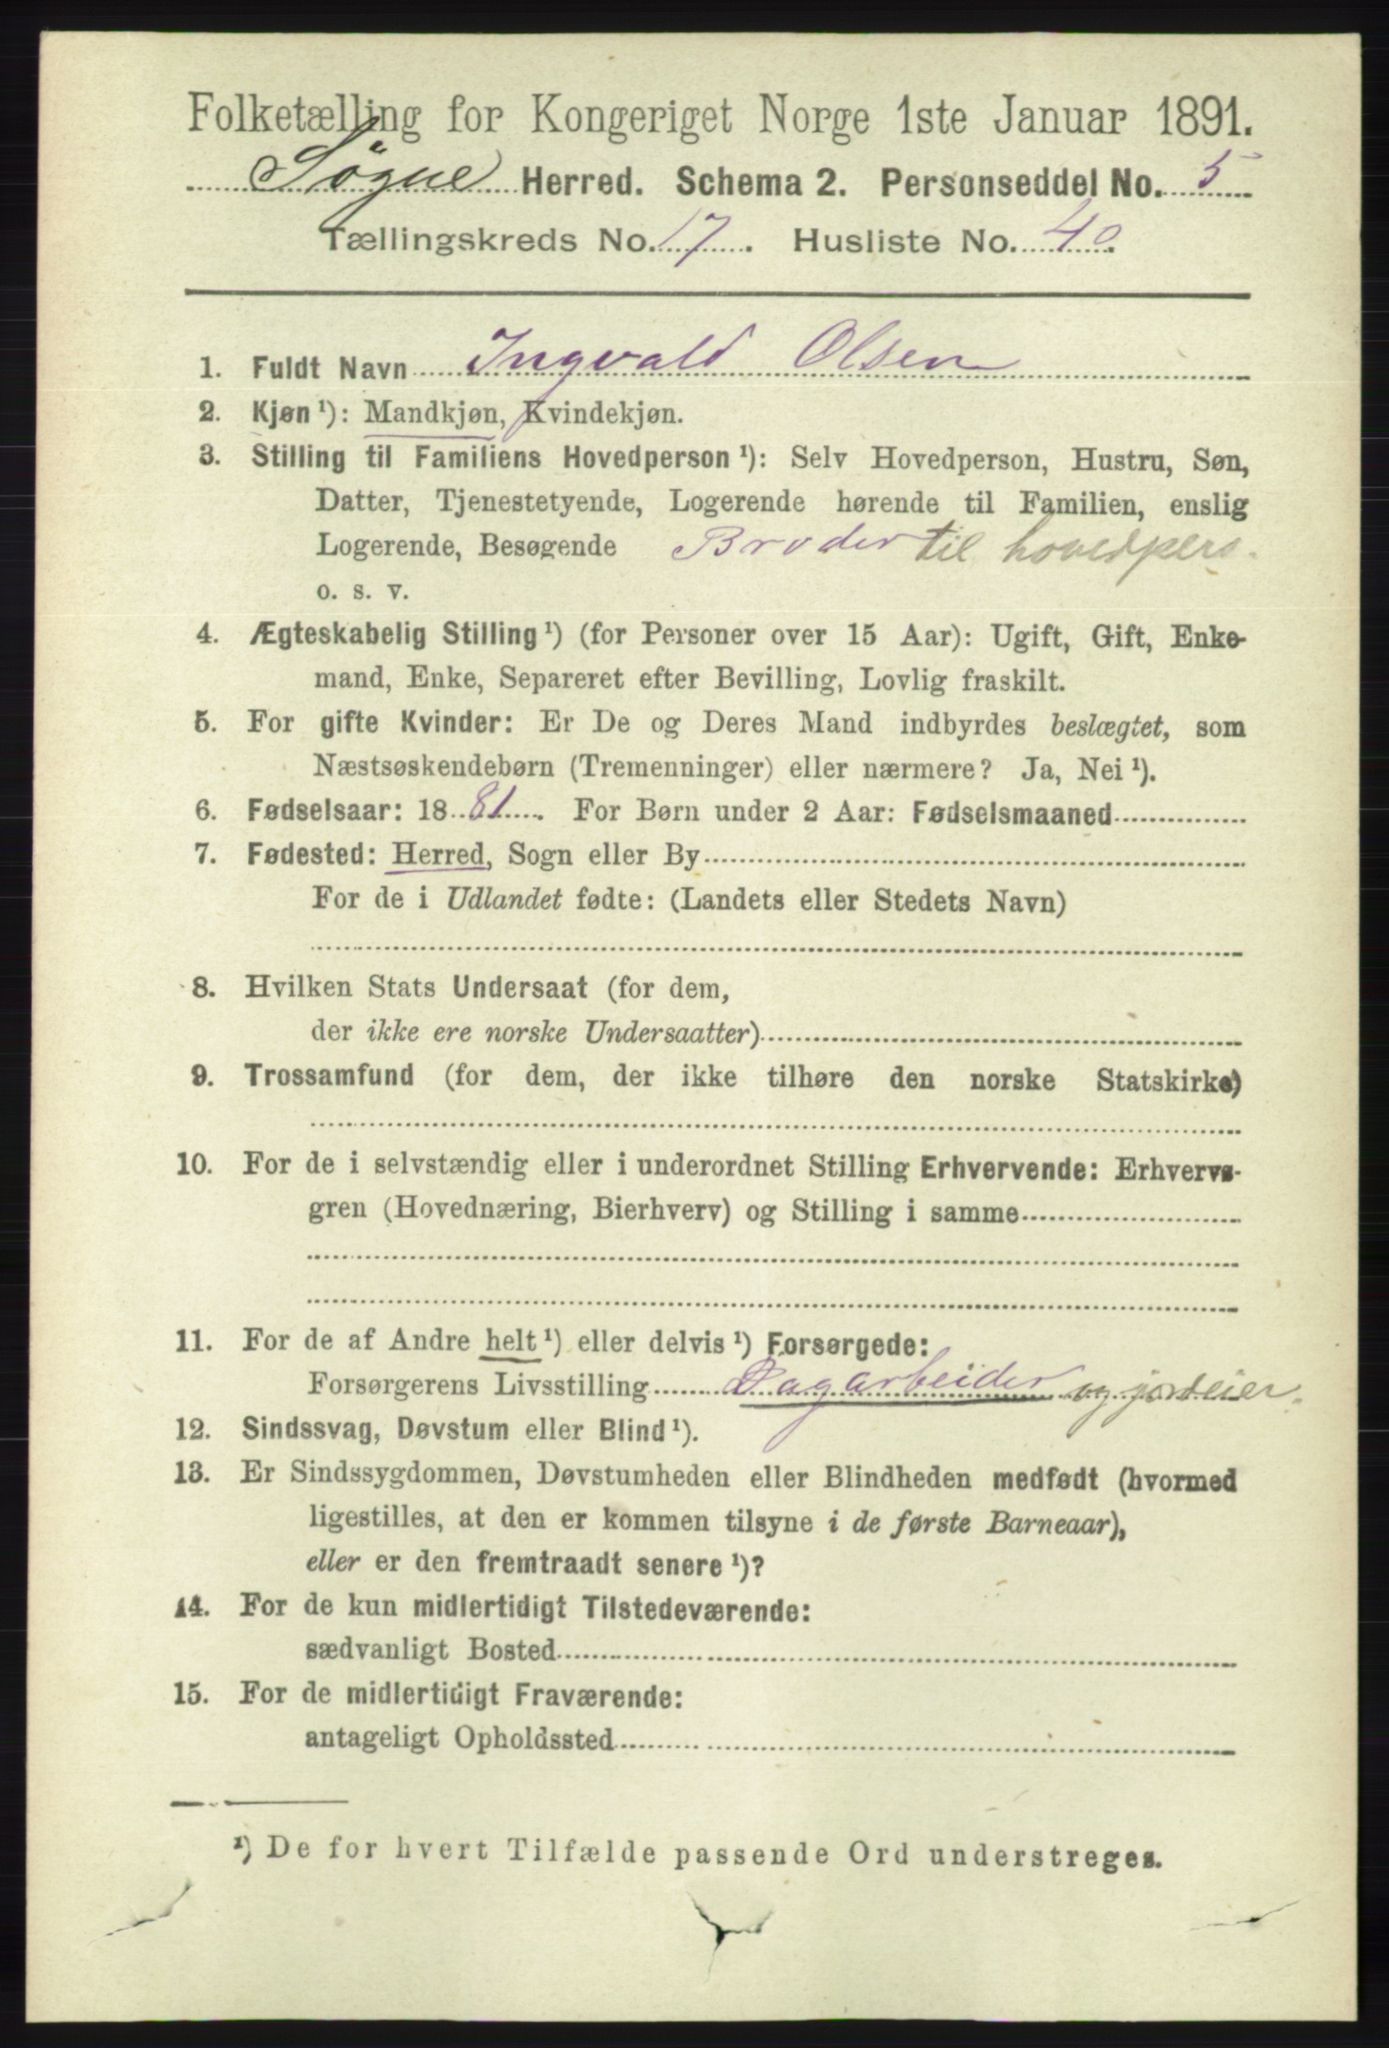 Folketælling for Kongeriget Norge 1ste Januar 1891.
Søgne Herred. Schema 2. Personseddel No. 5
Tællingskreds No. 17. Husliste No. 40.
1. Fuldt Navn Ingvald Olsen
2. Kjøn ¹): Mandkjøn, Kvindekjøn.
3. Stilling til Familiens Hovedperson ¹): Selv Hovedperson, Hustru, Søn,
Datter, Tjenestetyende, Logerende hørende til Familien, enslig
Logerende, Besøgende Broder til hovedpers.
o. s. v.
4. Ægteskabelig Stilling ¹) (for Personer over 15 Aar): Ugift, Gift, Enke-
mand, Enke, Separeret efter Bevilling, Lovlig fraskilt.
5. For gifte Kvinder: Er De og Deres Mand indbyrdes beslægtet, som
Næstsøskendebørn (Tremenninger) eller nærmere? Ja, Nei ¹).
6. Fødselsaar: 1881. For Børn under 2 Aar: Fødselsmaaned
7. Fødested: Herred, Sogn eller By
For de i Udlandet fødte: (Landets eller Stedets Navn)
8. Hvilken Stats Undersaat (for dem,
der ikke ere norske Undersaatter)
9. Trossamfund (for dem, der ikke tilhøre den norske Statskirke)
10. For de i selvstændig eller i underordnet Stilling Erhvervende: Erhvervs-
gren (Hovednæring, Bierhverv) og Stilling i samme
11. For de af Andre helt ¹) eller delvis ¹) Forsørgede:
Forsørgerens Livsstilling Dagarbeider og jordeier.
12. Sindssvag, Døvstum eller Blind ¹).
13. Er Sindssygdommen, Døvstumheden eller Blindheden medfødt (hvormed
ligestilles, at den er kommen tilsyne i de første Barneaar),
eller er den fremtraadt senere ¹)?
14. For de kun midlertidigt Tilstedeværende:
sædvanligt Bosted
15. For de midlertidigt Fraværende:
antageligt Opholdssted
¹) De for hvert Tilfælde passende Ord understreges.